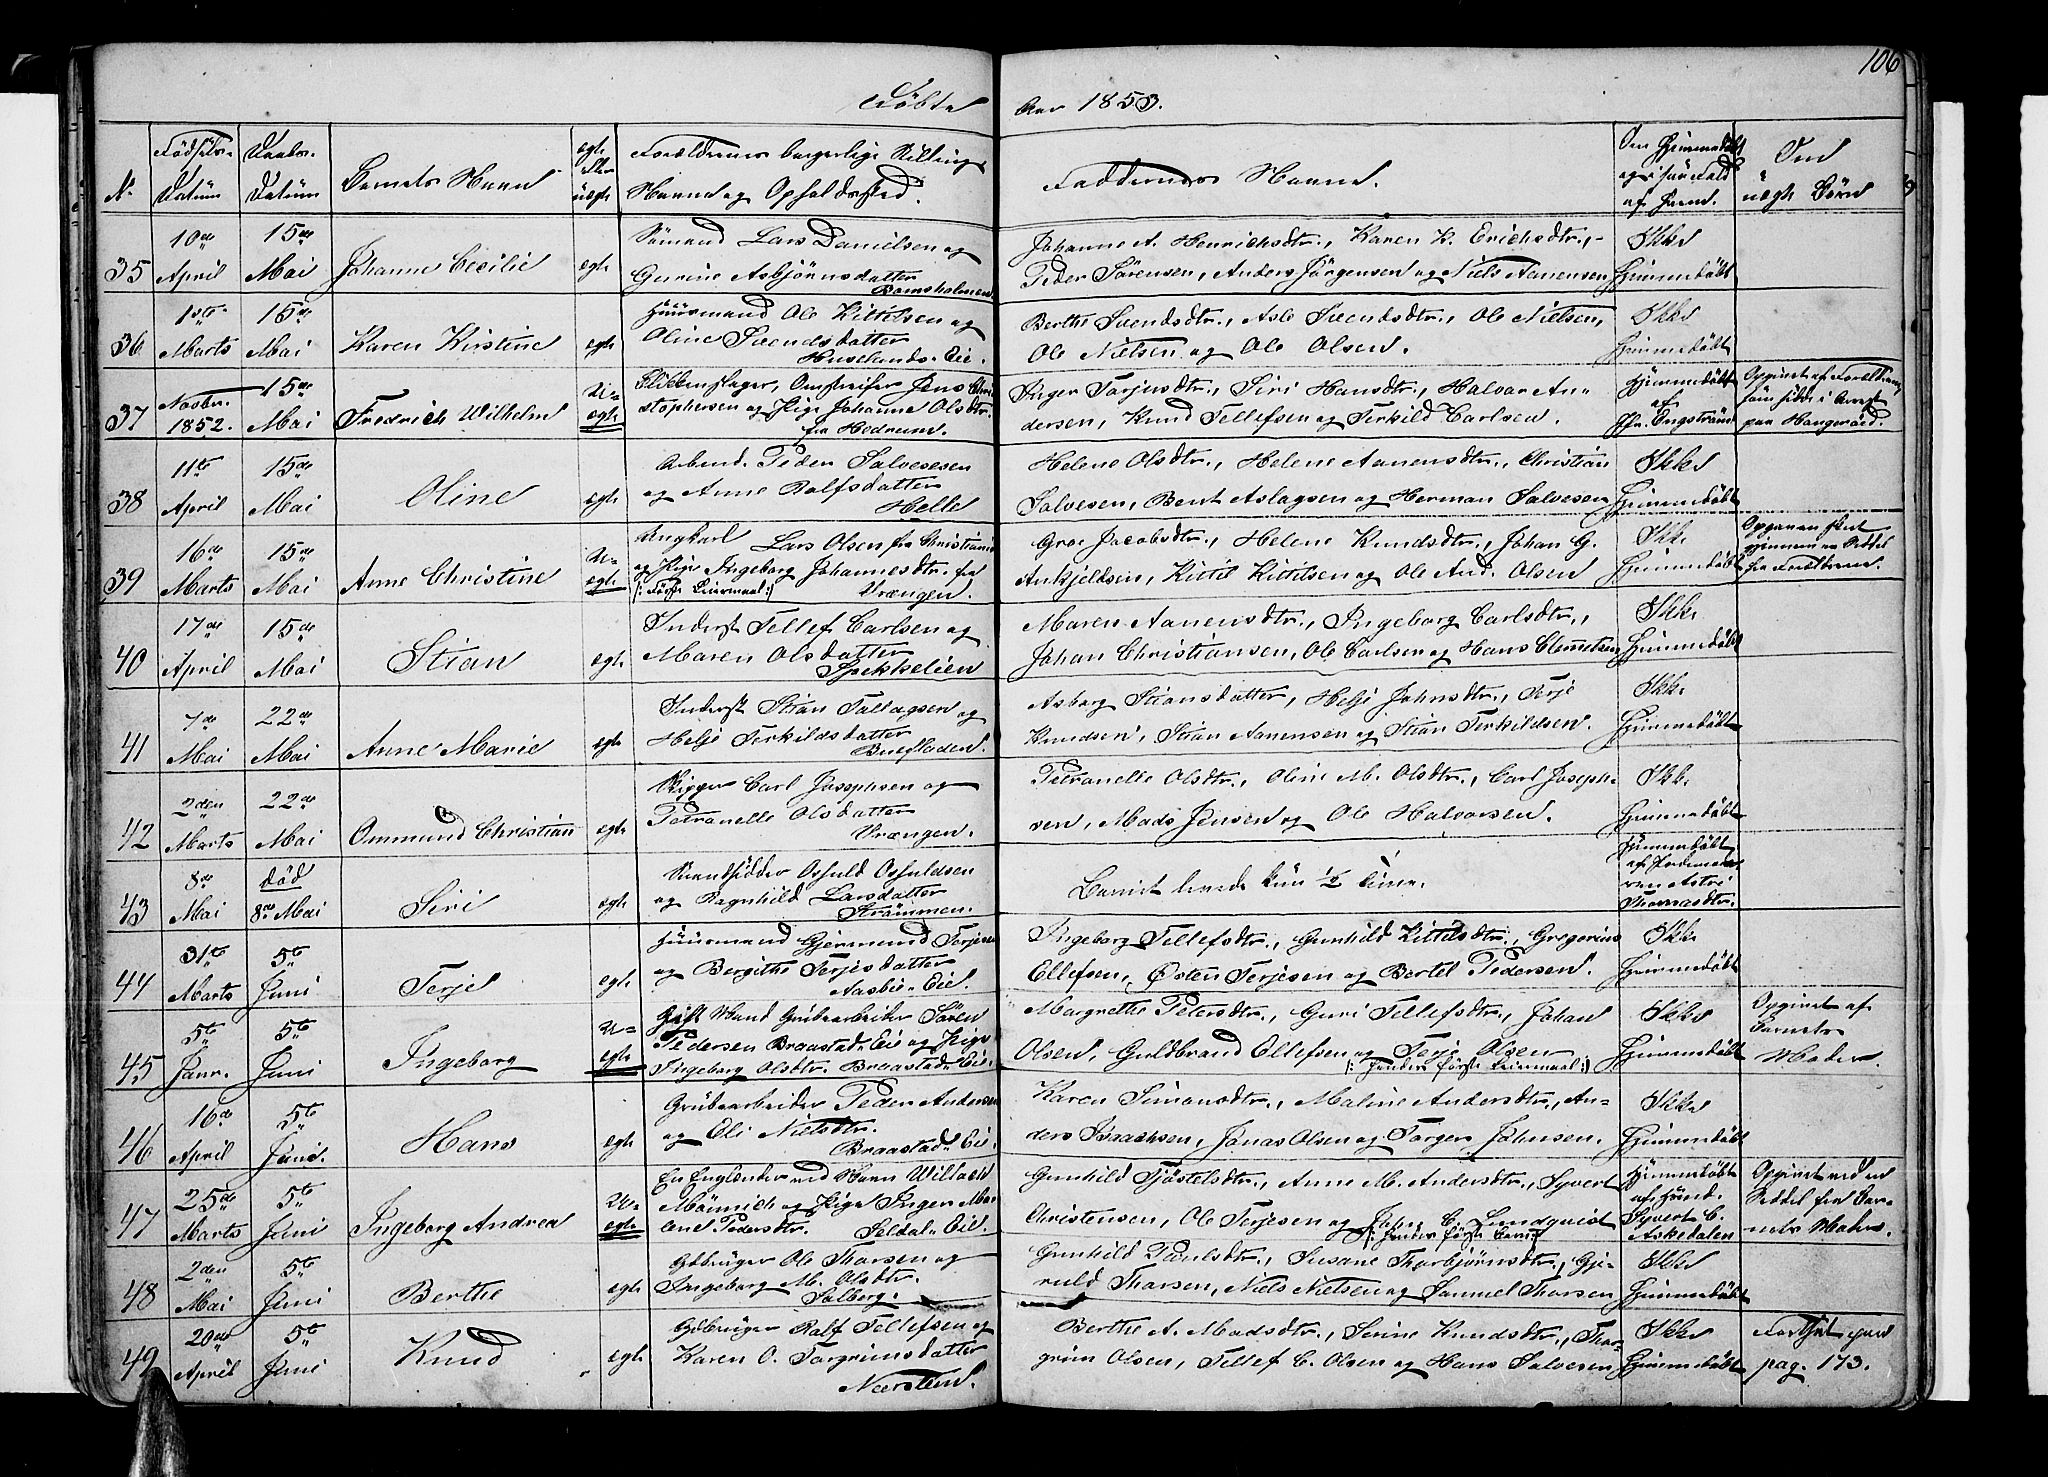 106
Födte
Aar 1853.
No
Födsels-
Datum
Daabs-
Datum
Barnets Navn
egte
eller
uegte
Forældrenes borgerlige Stilling
Navn og Opholdssted.
Faddernes Navne.
Om Hjemmedöbt
og i saa Fald
af hvem.
Om
uegte Börn
35
10de April
15de Mai
Johanne Cecilie
egte
Sömand Lars Danielsen og
Gurine Asbjörnsdatter
Bomsholmen
Johanne A. Henrichsdtr., Karen K. Erichsdtr.,
Peder Sörensen, Anders Jörgensen og Niels Aanensen
Ikke
Hjemmedöbt
36
1ste Marts
15de Mai
Karen Kirstine
egte
Huusmand Ole Kittelsen og
Oline Svendsdatter
Huselands Eie.
Berthe Svendsdtr., Asle Svendsdtr., Ole Nielsen,
Ole Nielsen og Ole Olsen.
Ikke
Hjemmedöbt
37
Novbr. 1852.
15de Mai
Fredrich Wilhelm
U-
egte
Blikkenslager, Omstreifer Jens Chri
stophersen og Pige Johanne Olsdtr.
fra Hedrum.
Inger Torjusdtr., Siri Hansdtr., Halvor An-
dersen, Knud Tellefsen og Terkild Carlsen.
Hjemmedöbt
af
Hr. Engström
Opgivet af Forældrene,
som sidde i Arrest
paa Haugeraad.
38
11te April
15de Mai
Oline
egte
Arbmd. Peder Salvesesen
og Anne Rolfsdatter
Helle
Helene Olsdtr., Helene Aanensdtr., Christian
Salvesen, Bent Aslagsen og Herman Salvesen
Ikke
Hjemmedöbt
39
16de Marts
15de Mai
Anne Christine
U-
egte
Ungkarl Lars Olsen fra Christiania
og Pige Ingeborg Johannesdtr. fra
/: Förste Leiermaal :/ Vrængen.
Groe Jacobsdtr., Helene Knudsdtr., Johan G.
Ankjeldsen, Kittil Kittilsen og Ole And. Olsen
Ikke
Hjemmedöbt
Opgaven skeet
gjennem en Seddel
fra Forældrene.
40
17de April
15de Mai
Stian
egte
Inderst Tellef Carlsen og
Maren Olsdatter
Spekkelien
Maren Aanensdtr., Ingeborg Carlsdtr.,
Johan Christiansen, Ole Carlsen og Hans Clemetsen
Ikke
Hjemmedöbt
41
7de Mai
22de Mai
Anne Marie
egte
Inderst Stian Tallagsen og
Helje Terkildsdatter
Buefladen.
Asborg Stiansdatter, Helje Johnsdtr., Terje
Knudsen, Stian Aanensen og Stian Terkildsen.
Ikke
Hjemmedöbt
42
2den Marts
22de Mai
Ommund Christian
egte
Rigger Carl Josephsen og
Petranelle Olsdatter
Vrængen.
Petranelle Olsdtr., Oline M. Olsdtr., Carl Joseph-
sen, Mads Jensen og Ole Halvorsen.
Ikke
Hjemmedöbt
43
8de Mai
död
8de Mai
Siri
egte
Strandsidder Osfuld Osfuldsen
og Ragnhild Larsdatter
Strömmen.
Barnet levede kun ½ Time.
Hjemmedöbt
af Jordemode-
ren Astri
Thomasdtr.
44
31te Marts
5te Juni
Terje
egte
Huusmand Gjermund Torjesen
og Bergithe Terjesdatter
Aasbie Eie.
Ingeborg Tellefsdtr., Gunhild Kittilsdtr., Gregorius
Ellefsen, Östen Terjesen og Bertel Pedersen.
Ikke
Hjemmedöbt
45
5te Janr.
5te Juni
Ingeborg
U-
egte
Gift Mand Grubearbeider Sören
Pedersen Braastad Eie og Pige
Ingeborg Olsdtr. Braastad Eie.
Margrethe Petersdtr., Guri Tellefsdtr., Johan
Olsen, Guldbrand Ellefsen og Terje Olsen
/: Hendes förste Leiermaal :/
Ikke
Hjemmedöbt
Opgivet af
Barnets
Moder.
46
16de April
5te Juni.
Hans
egte
Grubearbeider Peder Andersen
og Eli Nielsdtr.
Braastad Eie.
Karen Simonsdtr., Maline Andersdtr., An-
ders Isaachsen, Jonas Olsen og Torger Johnsen.
Ikke
Hjemmedöbt
47
25de Marts
5te Juni
Ingeborg Andrea
U-
egte
En Englænder ved Navn Willald
Mönnich og Pige Inger Ma-
lene Pedersdtr. Seldal Eie.
Gunhild Tjöstelsdtr., Anne M. Andersdtr., Syvert
Christensen, Ole Terjesen og John C. Lundqvist
/: Hendes förste Barn :/
Hjemmedöbt
af Huusmd.
Syvert C.
Askedalen
Opgivet ved en
Seddel fra Bar-
nets Moder.
48
2den Mai
5te Juni
Berthe
egte
Gdbruger Ole Thorsen og
Ingeborg M. Olsdtr.
Solberg.
Gunhild Paulsdtr., Susane Thorbjörnsdtr., Gje-
ruld Thorsen, Niels Nielsen og Samuel Thorsen
Ikke
Hjemmedöbt
49
20de April
5te Juni
Knud
egte
Gdbruger Rolf Tellefsen og
Karen O. Torgrimsdatter
Næresteen.
Berthe A. Madsdtr., Serine Knudsdtr., Thor-
grim Olsen, Tellef C. Olsen og Hans Salvesen
Ikke
Hjemmedöbt
Fortsat paa
pag. 173.